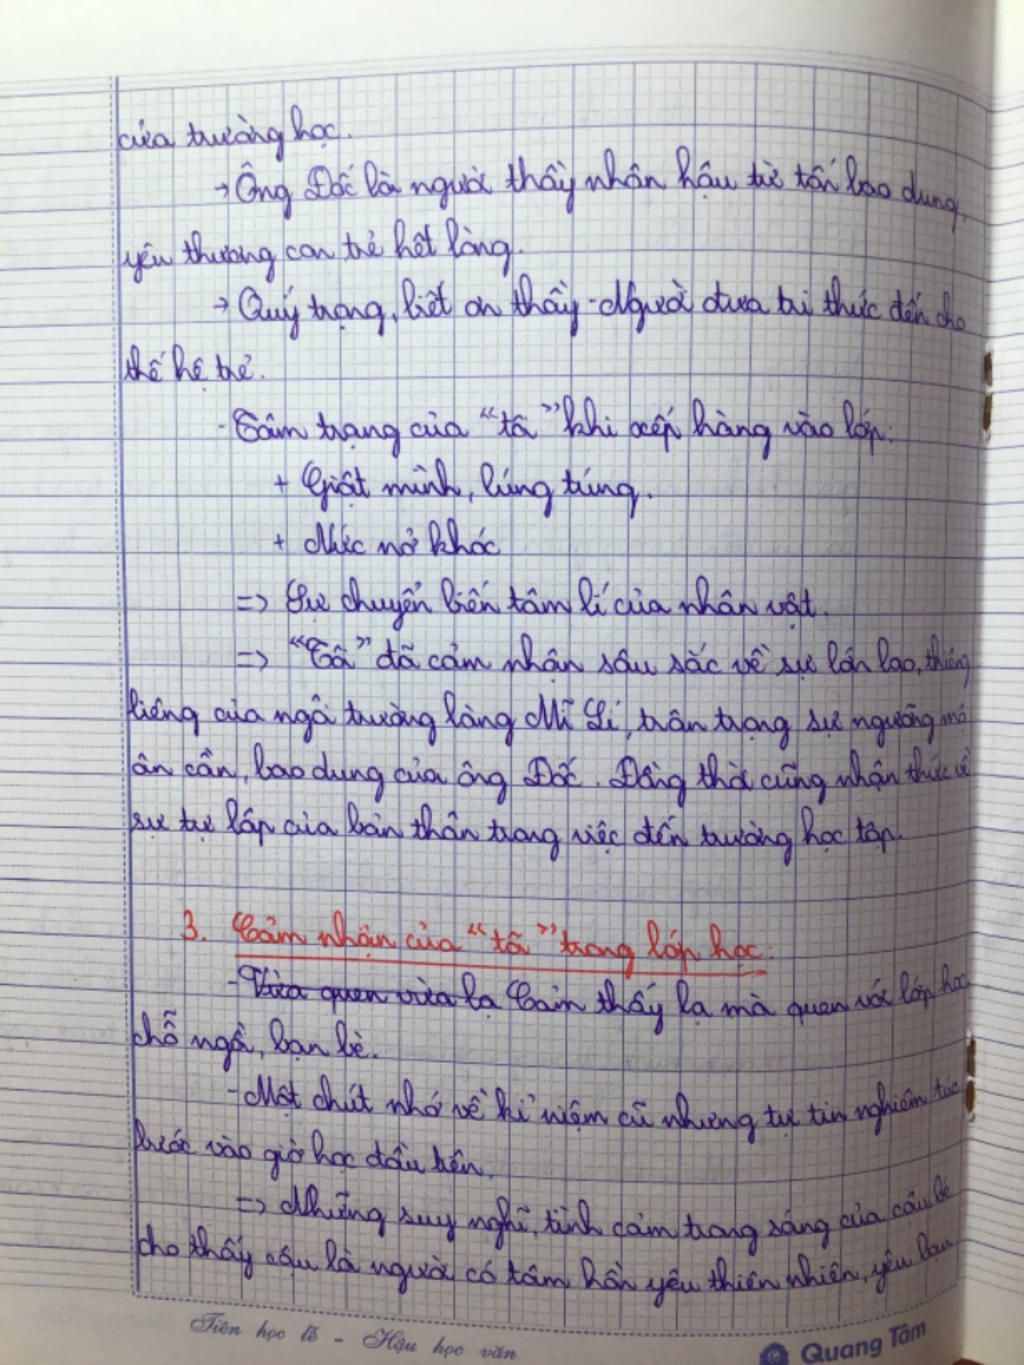 của trường học.
→ Ông Đốc là người thầy nhân hậu từ tốn bao dung,
yêu thương con trẻ hết lòng.
→ Quý trọng, biết ơn thầy - Người đưa tri thức đến cho
thế hệ trẻ.
- Tâm trạng của "tô" khi xếp hàng vào lớp:
+ Giật mình, lúng túng.
+ Nức nở khóc
=> Sự chuyển biến tâm lí của nhân vật.
=> "Tô" đã cảm nhận sâu sắc về sự lớn lao, thiêng
liêng của ngôi trường làng Mĩ Lí, trân trọng sự ngưỡng mộ
ân cần, bao dung của ông Đốc. Đồng thời cũng nhận thức về
sự tự lập của bản thân trong việc đến trường học tập.
3. Cảm nhận của "tô" trong lớp học:
- Vừa quen vừa lạ Cảm thấy lạ mà quen với lớp học
chỗ ngồi, bạn bè.
- Một chút nhớ về kỉ niệm cũ nhưng tự tin nghiêm túc
bước vào giờ học đầu tiên.
=> Những suy nghĩ, tình cảm trong sáng của cậu bé
cho thấy cậu là người có tâm hồn yêu thiên nhiên, yêu bạn
Tiên học lễ - Hậu học văn
Quang Tâm